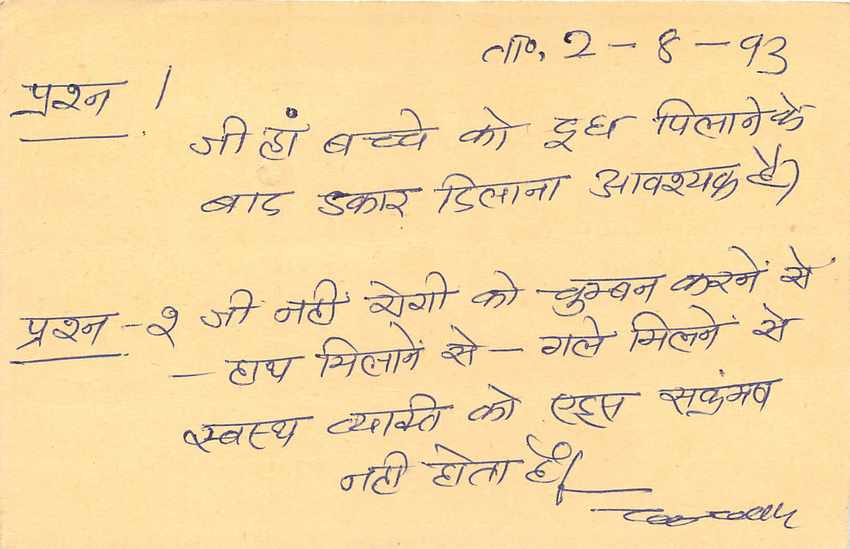 ता०. 2 - 8 - 93
प्रश्न 1
जी हां बच्चे को दूध पिलाने के
बाद डकार दिलाना आवश्यक है)
प्रश्न - २ जी नहीं रोगी को चुम्बन करनें से
- हाथ मिलानें से - गले मिलनें से
स्वस्थ व्यक्ति को एड्स सक्रंमण
नही होता है।